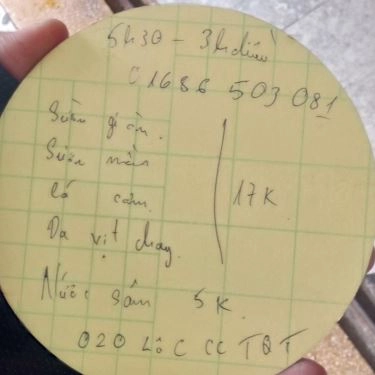 5h30 - 3h chiều
01686 503 081
Sườn
Sườn
lá cẩm
Da vịt chay
17K
Nước sâm 5K
020 Lô C CC TQT